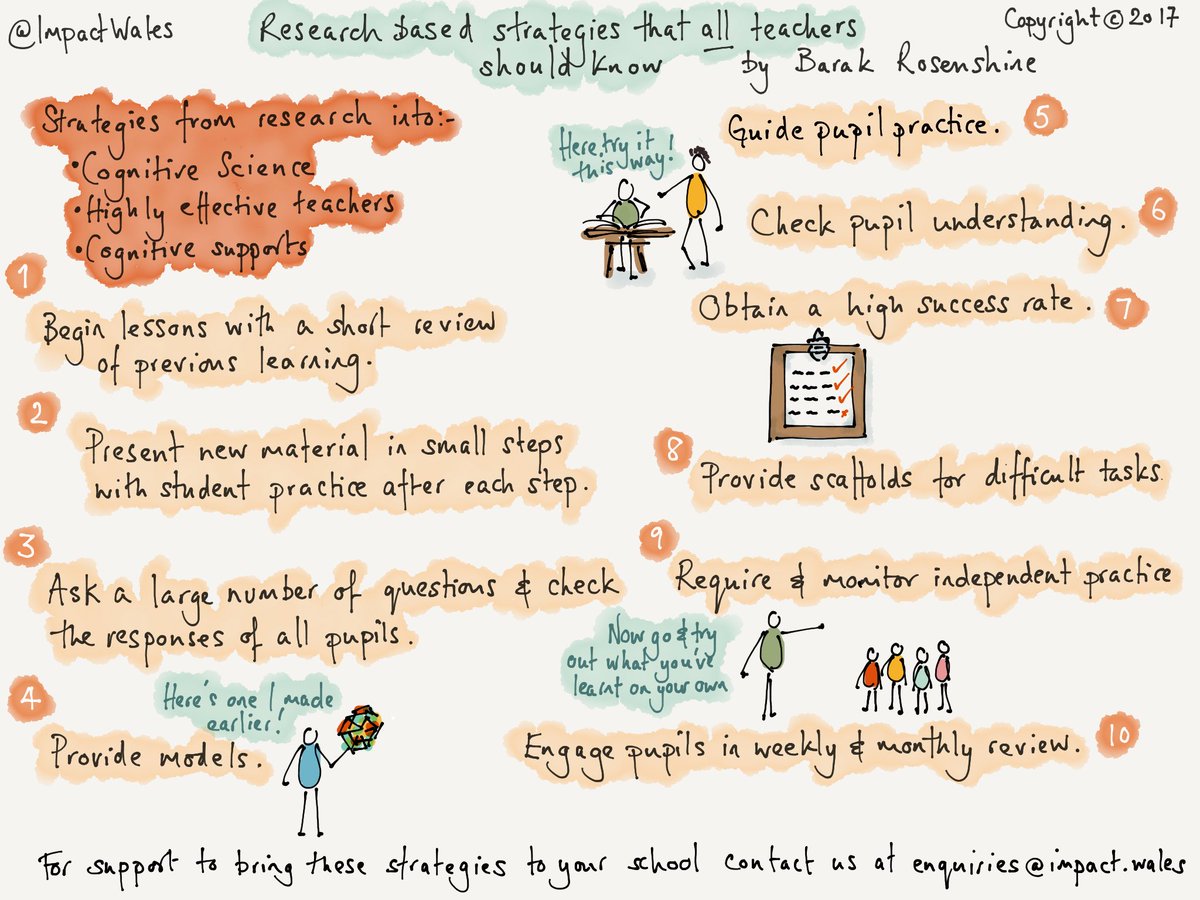 @ImpactWales
Research based strategies that all teachers
should know by Barak Rosenshine
Copyright © 2017
Strategies from research into:-
• Cognitive Science
• Highly effective teachers
• Cognitive supports
1
Begin lessons with a short review
of previous learning.
2
Present new material in small steps
with student practice after each step.
3
Ask a large number of questions & check
the responses of all pupils.
4
Here's one I made
earlier!
Provide models.
Here, try it
this way!
Guide pupil practice. 5
Check pupil understanding. 6
Obtain a high success rate. 7
8
Provide scaffolds for difficult tasks
9
Require & monitor independent practice
Now go & try
out what you've
learnt on your own
Engage pupils in weekly & monthly review. 10
For support to bring these strategies to your school contact us at enquiries@impact.wales